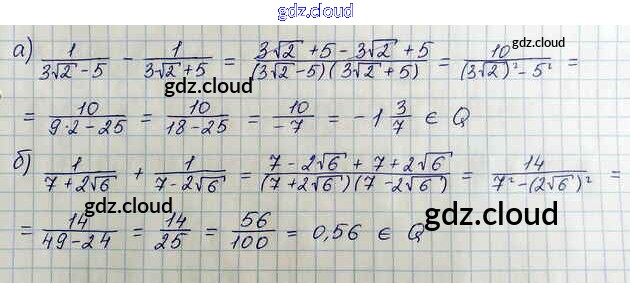 gdz.cloud
а) 1/(3√2 - 5) - 1/(3√2 + 5) = (3√2 + 5 - 3√2 + 5)/((3√2 - 5)(3√2 + 5)) = 10/((3√2)² - 5²) =
gdz.cloud
gdz.cloud
= 10/(9·2 - 25) = 10/(18 - 25) = 10/(-7) = -1 3/7 ∈ Q
gdz.cloud
б) 1/(7 + 2√6) + 1/(7 - 2√6) = (7 - 2√6 + 7 + 2√6)/((7 + 2√6)(7 - 2√6)) = 14/(7² - (2√6)²) =
gdz.cloud
gdz.cloud
= 14/(49 - 24) = 14/25 = 56/100 = 0,56 ∈ Q
gdz.cloud